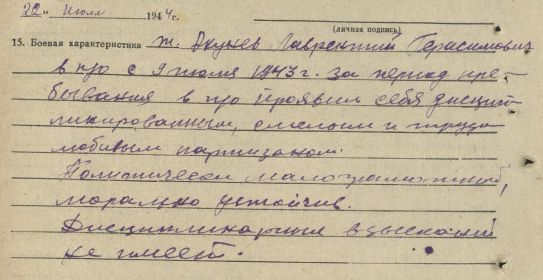 22" Июля 1944г.
(личная подпись)
15. Боевая характеристика т. Якунев Лаврентий Герасимович
в п/о с 9 июля 1943 г. за период пре-
бывания в п/о проявил себя дисцип
линированным, смелым и трудо
любивым партизаном.
Политически малограмотный,
морально устойчив.
Дисциплинарных взысканий
не имеет.